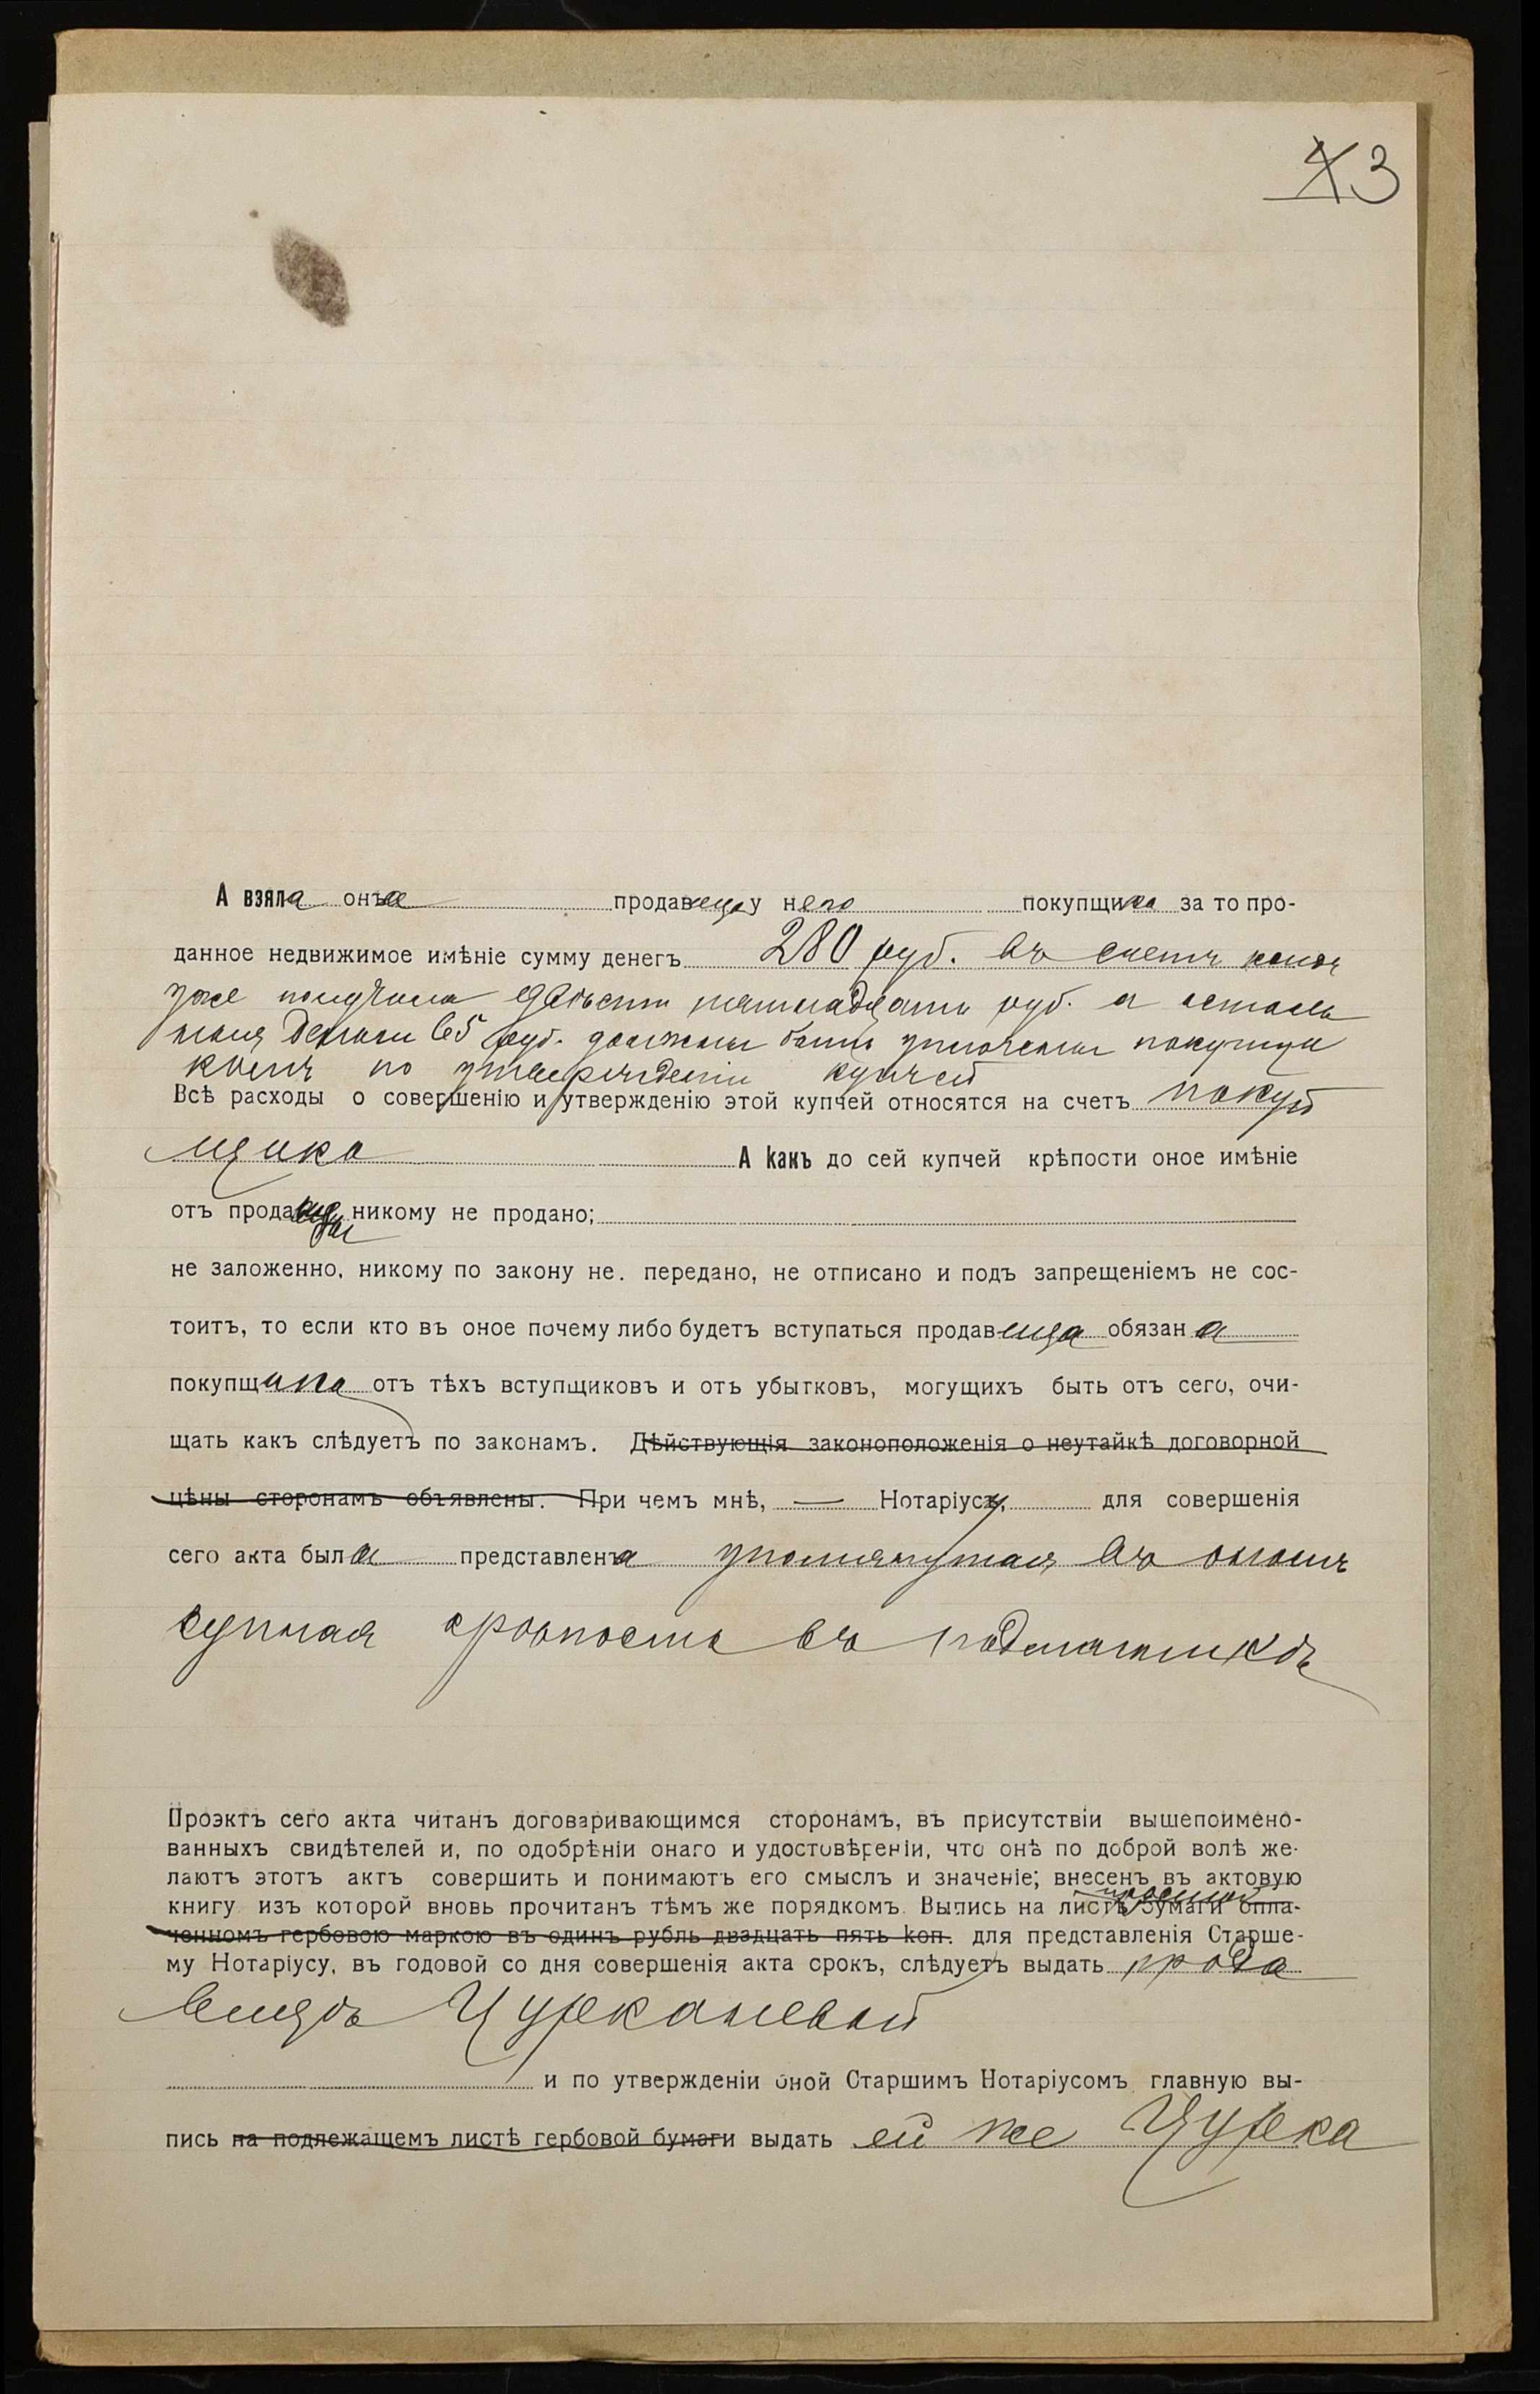 4 3
А взяла она продавица у него покупщика за то про-
данное недвижимое имѣніе сумму денегъ 280 руб. въ счетъ коихъ
уже получила двѣсти пятнадцать руб. а осталь
ныя деньги 65 руб. должны быть уплочены покупщи
комъ по утвержденіи купчей
Всѣ расходы о совершенію и утвержденію этой купчей относятся на счетъ покуп
щика А какъ до сей купчей крѣпости оное имѣніе
отъ продавицы никому не продано;
не заложенно, никому по закону не. передано, не отписано и подъ запрещеніемъ не сос-
тоитъ, то если кто въ оное почему либо будетъ вступаться продавица обязана
покупщика отъ тѣхъ вступщиковъ и отъ убытковъ, могущихъ быть отъ сего, очи-
щать какъ слѣдуетъ по законамъ. Дѣйствующія законоположенія о неутайкѣ договорной
цѣны сторонамъ объявлены. При чемъ мнѣ, — Нотаріусу, для совершенія
сего акта была представлена упомянутая въ ономъ
купчая крѣпость въ подлинникѣ
Проэктъ сего акта читанъ договаривающимся сторонамъ, въ присутствіи вышепоимено-
ванныхъ свидѣтелей и, по одобрѣніи онаго и удостовѣреніи, что онѣ по доброй волѣ же-
лаютъ этотъ актъ совершить и понимаютъ его смыслъ и значеніе; внесенъ въ актовую
книгу изъ которой вновь прочитанъ тѣмъ же порядкомъ. Выпись на листѣ бумаги опла-
ченномъ гербовою маркою въ одинъ рубль двадцать пять коп. для представленія Старше-
му Нотаріусу, въ годовой со дня совершенія акта срокъ, слѣдуетъ выдать прода
вицѣ Чуркановой
и по утвержденіи оной Старшимъ Нотаріусомъ главную вы-
пись на подлежащемъ листѣ гербовой бумаги выдать ей же Чурка